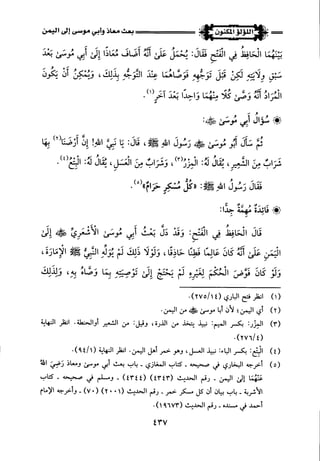 اللؤلؤ المكنون
بعث معاذ وأبي موسى إلى اليمن
بَيْنَهُمَا الحَافِظُ في الفَتْحِ فقال: يُحْمَلُ على أنَّه أضافَ مُعَاذًا إلى أبي موسى بَعْدَ
سَبْقِ وِلايَتِهِ لكن قَبْلَ تَوَجُّهِهِ فَوَصَّاهُمَا عند التَّوَجُّهِ بذلك، ويُمْكِنُ أن يكونَ
المُرَادُ أنَّه وَصَّى كلًّا منهما واحِدًا بَعْدَ آخَرَ(١).
* سؤال أبي موسى ﷺ:
ثم سأل أبو موسى ﷺ رسول الله ﷺ، فقال: يا نَبِيَّ اللهِ! إنَّ أَرْضَنَا(٢) بها
شَرَابٌ من الشَّعِيرِ، يقال له: المِزْرُ(٣)، وشَرَابٌ من العَسَلِ، يقال له: البِتْعُ(٤).
فقال رسول الله ﷺ: «كُلُّ مُسْكِرٍ حَرَامٌ»(٥).
* فائدة مهمة جدًّا:
قال الحافظ في الفتح: وقد بعث أبي موسى الأشعري ﷺ إلى
اليمن على أنَّه كان عالِمًا فَطِنًا حاذِقًا، ولولا ذلك لم يُوَلِّهِ النبي ﷺ الإمَارَةَ،
ولو كان فَوَّضَ الحُكْمَ لغيرِه لم يَحْتَجْ إلى تَوْصِيَتِهِ بما وَصَّاه به، ولذلك
(١) انظر فتح الباري (٢٧٥/١٤).
(٢) أي اليمن؛ لأن أبا موسى ﷺ من اليمن.
(٣) المزر: بكسر الميم: نبيذ يتخذ من الذرة، وقيل: من الشعير أو الحنطة. انظر النهاية
(٢٧٦/٤).
(٤) البتع: بكسر الباء: نبيذ العسل، وهو خمر أهل اليمن. انظر النهاية (٩٤/١).
(٥) أخرجه البخاري في صحيحه - كتاب المغازي - باب بعث أبي موسى ومعاذ رضي الله
عنهما إلى اليمن - رقم الحديث (٤٣٤٣) (٤٣٤٤) - ومسلم في صحيحه - كتاب
الأشربة - باب بيان أن كل مسكر خمر - رقم الحديث (٢٠٠١) (٧٠) - وأخرجه الإمام
أحمد في مسنده - رقم الحديث (١٩٦٧٣).
٤٣٧